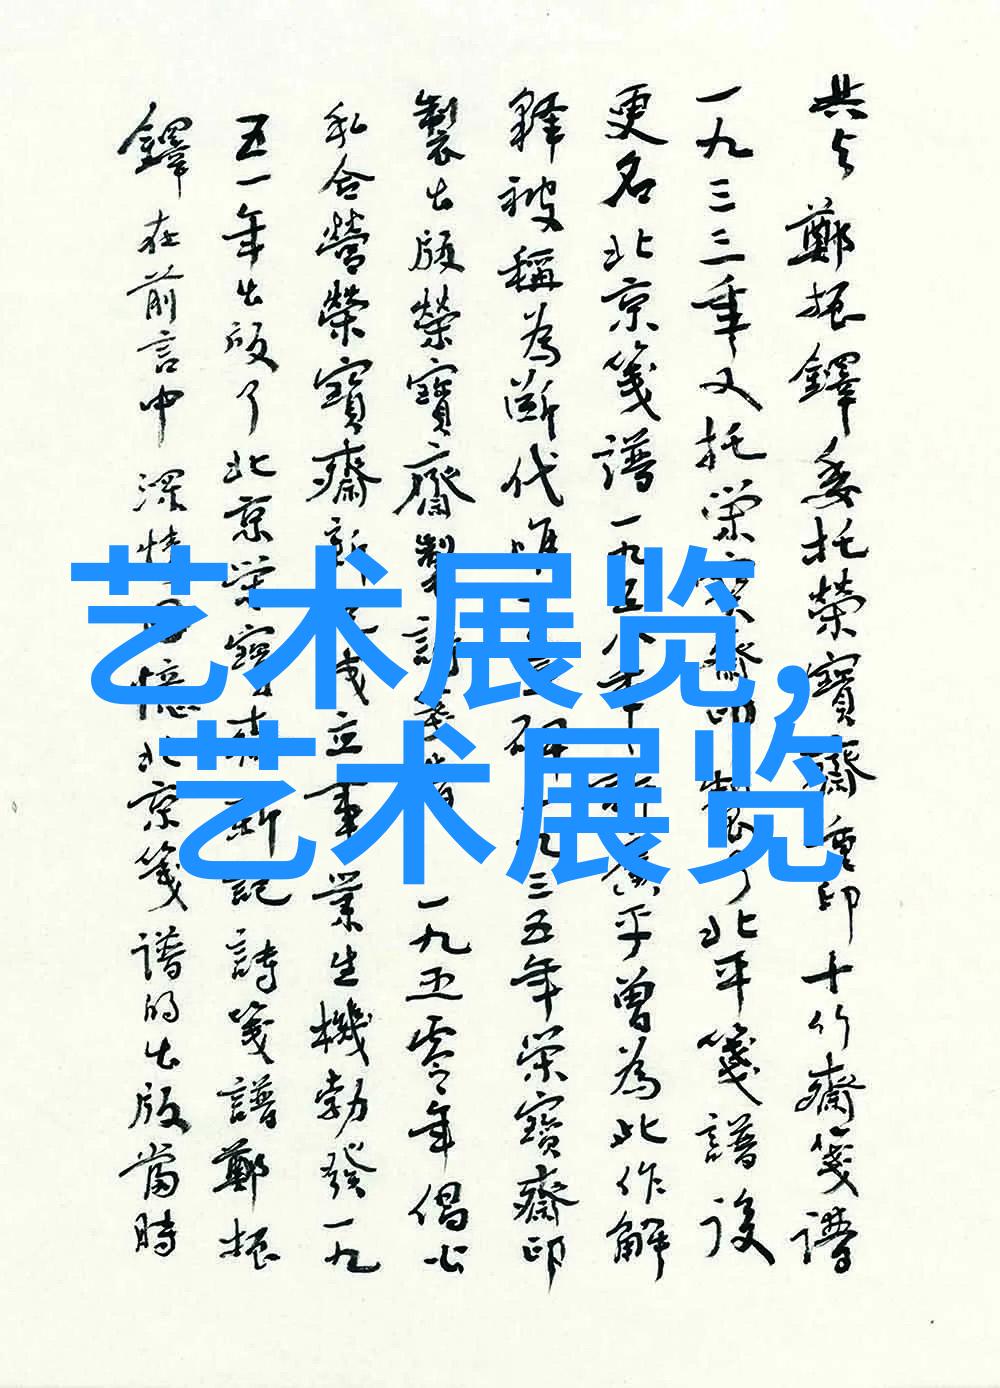 共与鄭振鐸委托榮寶齋重印十竹齋箋譜
一九三三年又托榮寶齋印製了北平箋譜後
更名北京箋譜一九五八年新魯平曾為此作解
釋被稱為斷代唯一三五年榮寶齋印
製出版榮寶齋製詩箋譜一九五零年倡公
私合營榮寶齋新記成立事業生機勃發一九
五一年出版了北京榮寶齋新記詩箋譜鄭振
鐸在前言中深情回憶北京箋譜的出版當時
艺术展览,
艺术展览